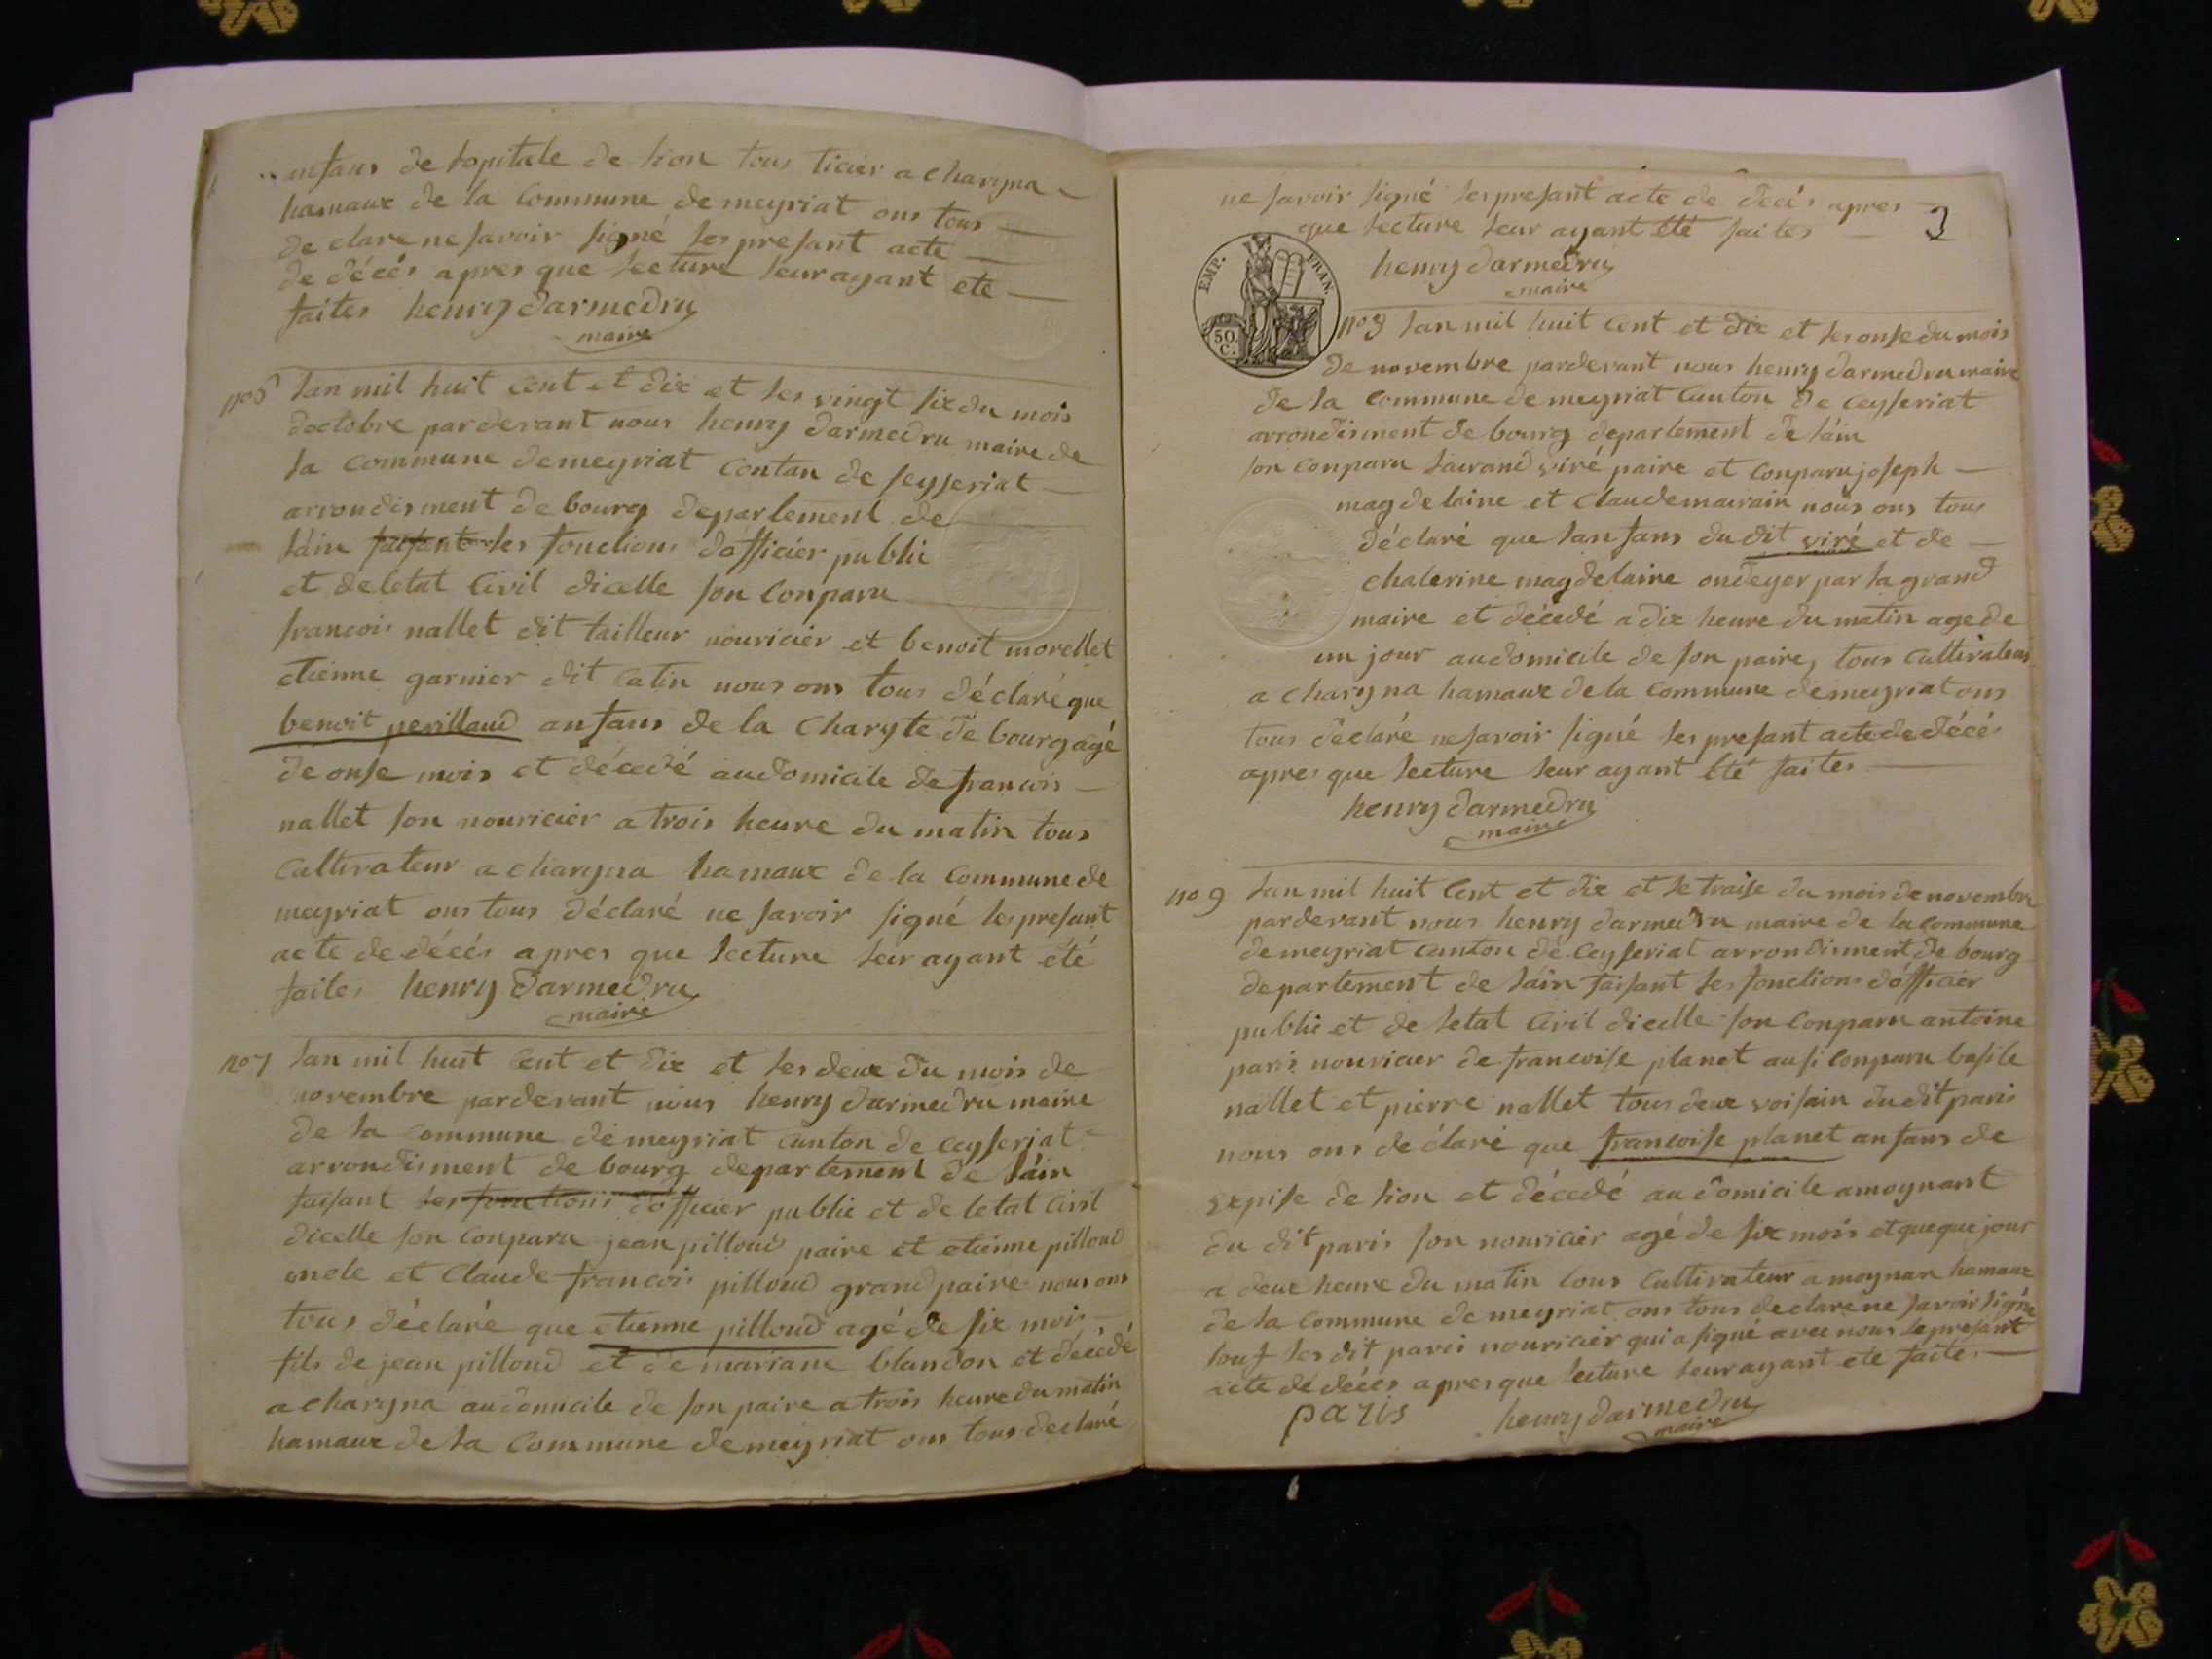 anfans de lopitale de lion tous ticier a charyna
hamaux de la Commune de meyriat ons tous
declare ne savoir signé les presant acte
de décés apres que lecture leur ayant ete
faites henry darmedru
maire
no 6 lan mil huit cent et dix et les vingt six du mois
doctobre parderant nous henry darmedru maire de
la commune de meyriat Contan de seyseriat
arrondisment de bourg departement de
láin faisant les fonctions dofficier publie
et de letat Civil dicelle son Conparu
francois nallet dit tailleur nouricier et benoit morellet
etienne garnier dit Catin nous ons tous déclaré que
benoit perillaud anfans de la Charyte de bourg agé
de onse mois et décedé audomicile de francois
nallet son nouricier a trois heure du matin tous
Cultivateur a charyna hamaux de la Commune de
meyriat ons tous déclaré ne savoir signé les presant
acte de décés apres que lecture leur ayant été
faites henry darmedru
maire
no 7 lan mil huit Cent et dix et les deux du mois de
novembre parderant nous henry darmedru maire
de la Commune de meyriat Canton de ceyseriat
arrondisment de bourg departement de láin
faisant les fonctions dofficier publie et de letat Civil
dicelle son Conparu jean pilloud paire et etienne pilloud
oncle et Claude francois pilloud grand paire nous ons
tous déclaré que etienne pilloud agé de six mois
fils de jean pilloud et de mariane blandon et décédé
a charyna au domicile de son paire a trois heure du matin
hamaux de la Commune de meyriat ons tous declaré
ne savoir signé les presant acte de décés apres
3
que lecture leur ayant été faites
henry darmedru
maire
EMP. FRAN.
50 C.
no 8 lan mil huit Cent et dix et les onse du mois
de novembre parderant nous henry darmedru maire
de la Commune de meyriat Canton de Ceyseriat
arrondisment de bourg departement de láin
son Conparu laurand viré paire et Conparu joseph
magdelaine et Claude maurain nous ons tous
déclaré que lanfans du dit viré et de
chaterine magdelaine ondeyer par la grand
maire et décedé a dix heure du matin age de
un jour au domicile de son paire, tous Cultivateur
a charyna hamaux de la Commune de meyriat ons
tous déclaré ne savoir signé les presant acte de décés
apres que lecture leur ayant été faites
henry darmedru
maire
no 9 lan mil huit Cent et dix et le traise du mois de novembre
parderant nous henry darmedru maire de la Commune
de meyriat Canton de Ceyseriat arrondisment de bourg
departement de láin faisant les fonctions dófficier
publie et de letat Civil dicelle son Conparu antoine
paris nouricier de francoise planet ausi Conparu basile
nallet et pierre nallet tous deux voisain du dit paris
nous ons declaré que francoise planet anfans de
Expise de lion et décedé au domicile amoynant
du dit paris son nouricier agé de six mois et queque jour
a deux heure du matin tous Cultivateur a moynan hamaux
de la Commune de meyriat ons tous declaré ne savoir signé
souf les dit paris nouricier qui a signé avec nous le presant
acte de décés apres que lecture leur ayant ete faites
paris henry darmedru
maire